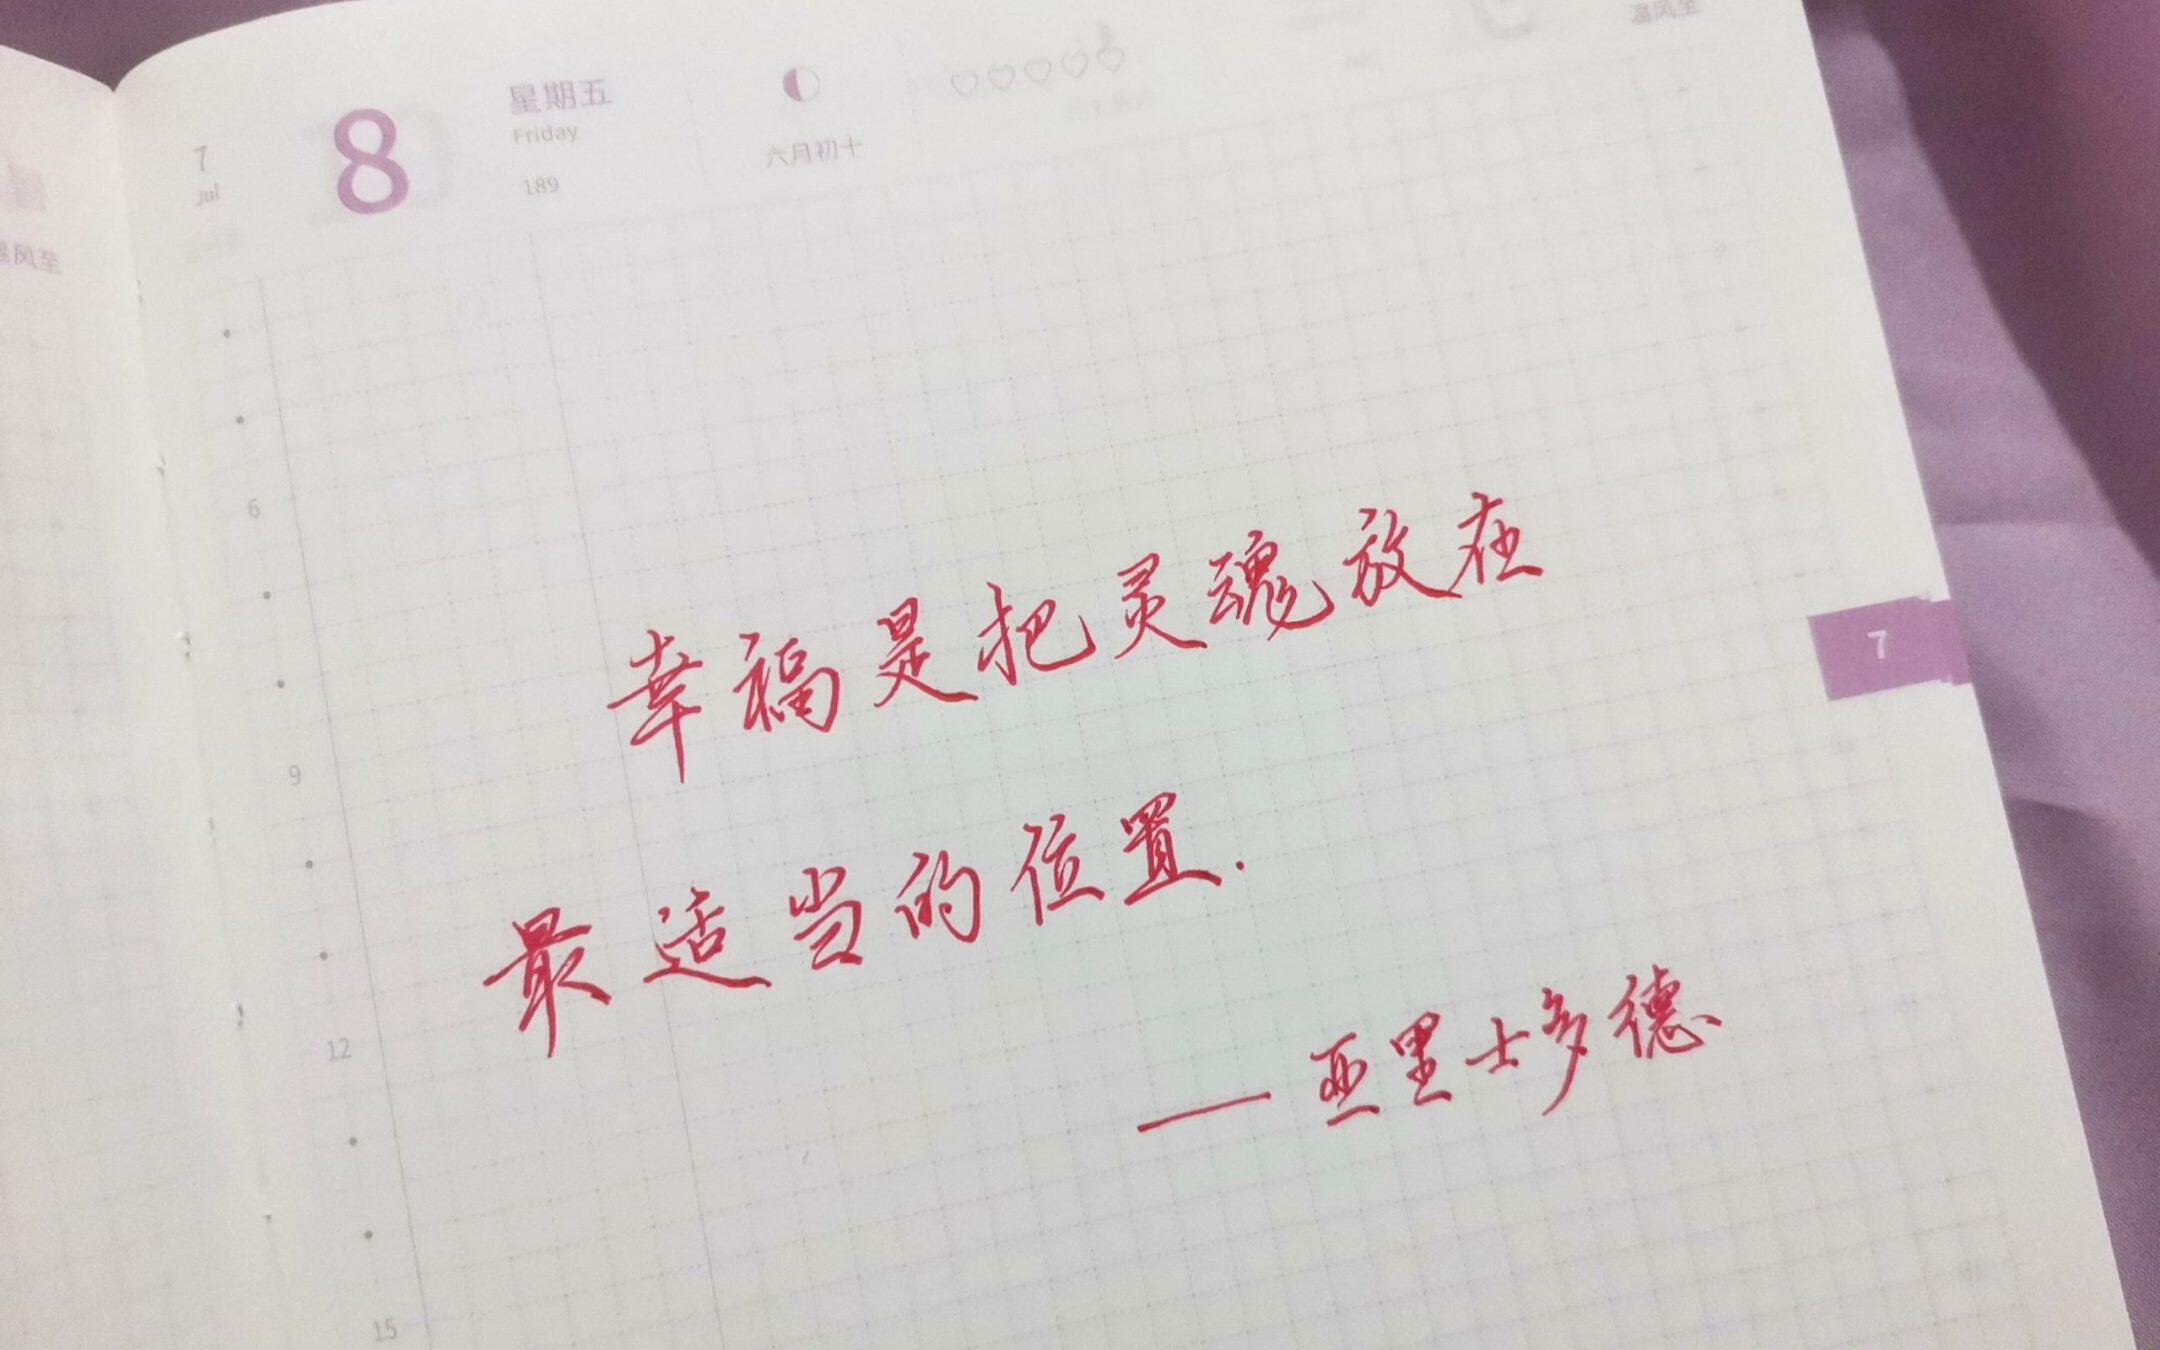 温风至
7
Jul
8
星期五
Friday
189
六月初十
温风至
6
幸福是把灵魂放在
7
9
最适当的位置.
12
——亚里士多德
15